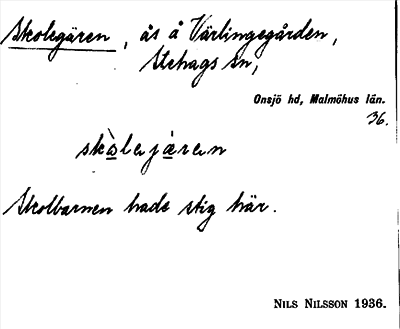 Skolegären, ås å Värlingegården,
Stehags sn,
Onsjö hd, Malmöhus län.
36.
skòlejæren
Skolbarnen hade stig här.
NILS NILSSON 1936.